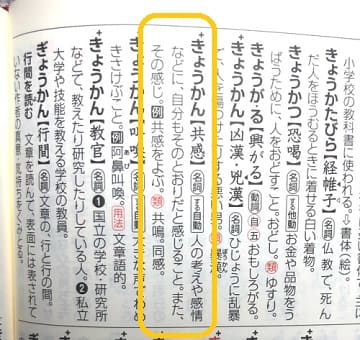 小学校の教科書に使われる。⇨書体(絵)。
きょうかたびら【経帷子】名詞 仏教で、死ん
だ人をほうむるときに着せる白い着物。
きょうかつ【恐喝】名詞 する他動 お金や品物をう
ばうために、人をおどすこと。おどし。類ゆすり。
きょうがる【興がる】動詞 自五 おもしろがる。
きょうかん【凶漢・兇漢】名詞 ひじょうに乱暴
きょうかん【共感】名詞 する自動 人の考えや感情
などに、自分もそのとおりだと感じること。また、
その感じ。例共感をよぶ。類共鳴。同感。
きょうかん【叫喚】名詞 する自動 大きな声でわめ
きさけぶこと。例阿鼻叫喚。用法文章語的。
きょうかん【教官】名詞 ❶国立の学校・研究所
などで、教えたり研究したりしている人。❷私立
大学や技能を教える学校の教員。
ぎょうかん【行間】名詞 文章の、行と行の間。
行間を読む 文章を読んで、表面には表されて
いない作者の真意・気持ちをくみとる。